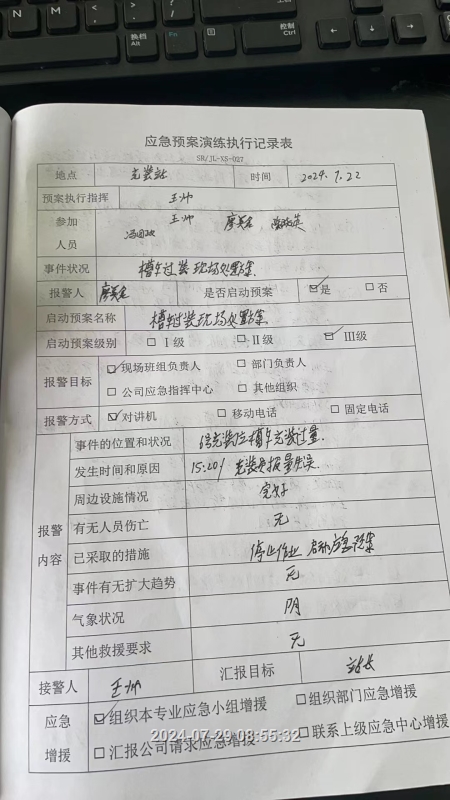 N
M
<
>
?
换档
Alt
Fn
控制
Ctrl
应急预案演练执行记录表
SR/JL-XS-027
地点 充装站 时间 2024.7.22
预案执行指挥 王帅
参加
人员
王帅 廖美名
事件状况 槽车过装现场处置方案
报警人 廖美名 是否启动预案 ☑是 □否
启动预案名称 槽车过装现场处置方案
启动预案级别 □Ⅰ级 □Ⅱ级 ☑Ⅲ级
报警目标
☑现场班组负责人 □部门负责人
□公司应急指挥中心 □其他组织
报警方式 ☑对讲机 □移动电话 □固定电话
报警
内容
事件的位置和状况 充装位槽车充装过量
发生时间和原因 15:20 充装员报量失误
周边设施情况 完好
有无人员伤亡 无
已采取的措施 停止作业 启动应急预案
事件有无扩大趋势 无
气象状况 阴
其他救援要求 无
接警人 王帅 汇报目标 站长
应急
增援
☑组织本专业应急小组增援 □组织部门应急增援
□汇报公司请求应急增援 □联系上级应急中心增援
2024-07-29 08:55:32